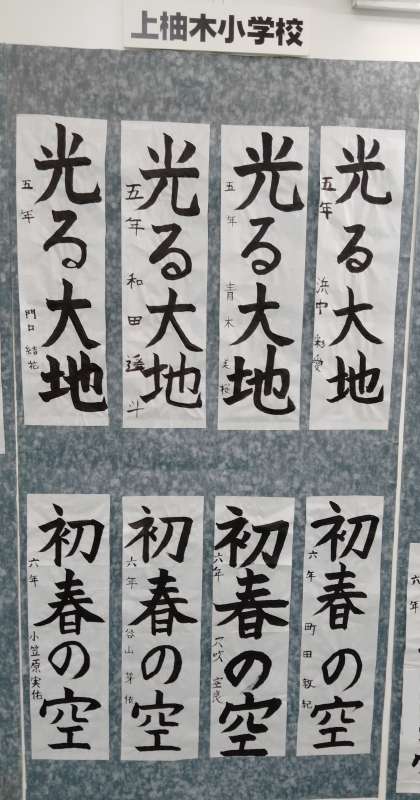 上柚木小学校
光る大地
五年 浜中
光る大地
五年 青木
光る大地
五年 和田 斗
光る大地
五年 門口 結花
初春の空
六年 町田 敦紀
初春の空
六年 穴吹
初春の空
六年 谷山 芽依
初春の空
六年 小笠原実佑
六
年